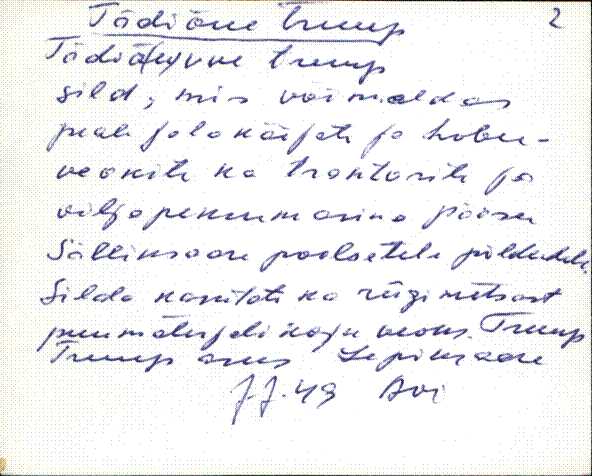 Tädiäve trump 2
Tädiä(e)vve trump
sild, mis võimaldas
peale jalakäijate ja hobu-
veokite ka traktorite ja
viljapeksumasina pääsu
Sälliksaare poolsetele põldudele.
Silda kasutati ka riigimetsast
puumaterjali koju veoks. Trump
Trump asus Lepiksaare
J.J. 49 Avi